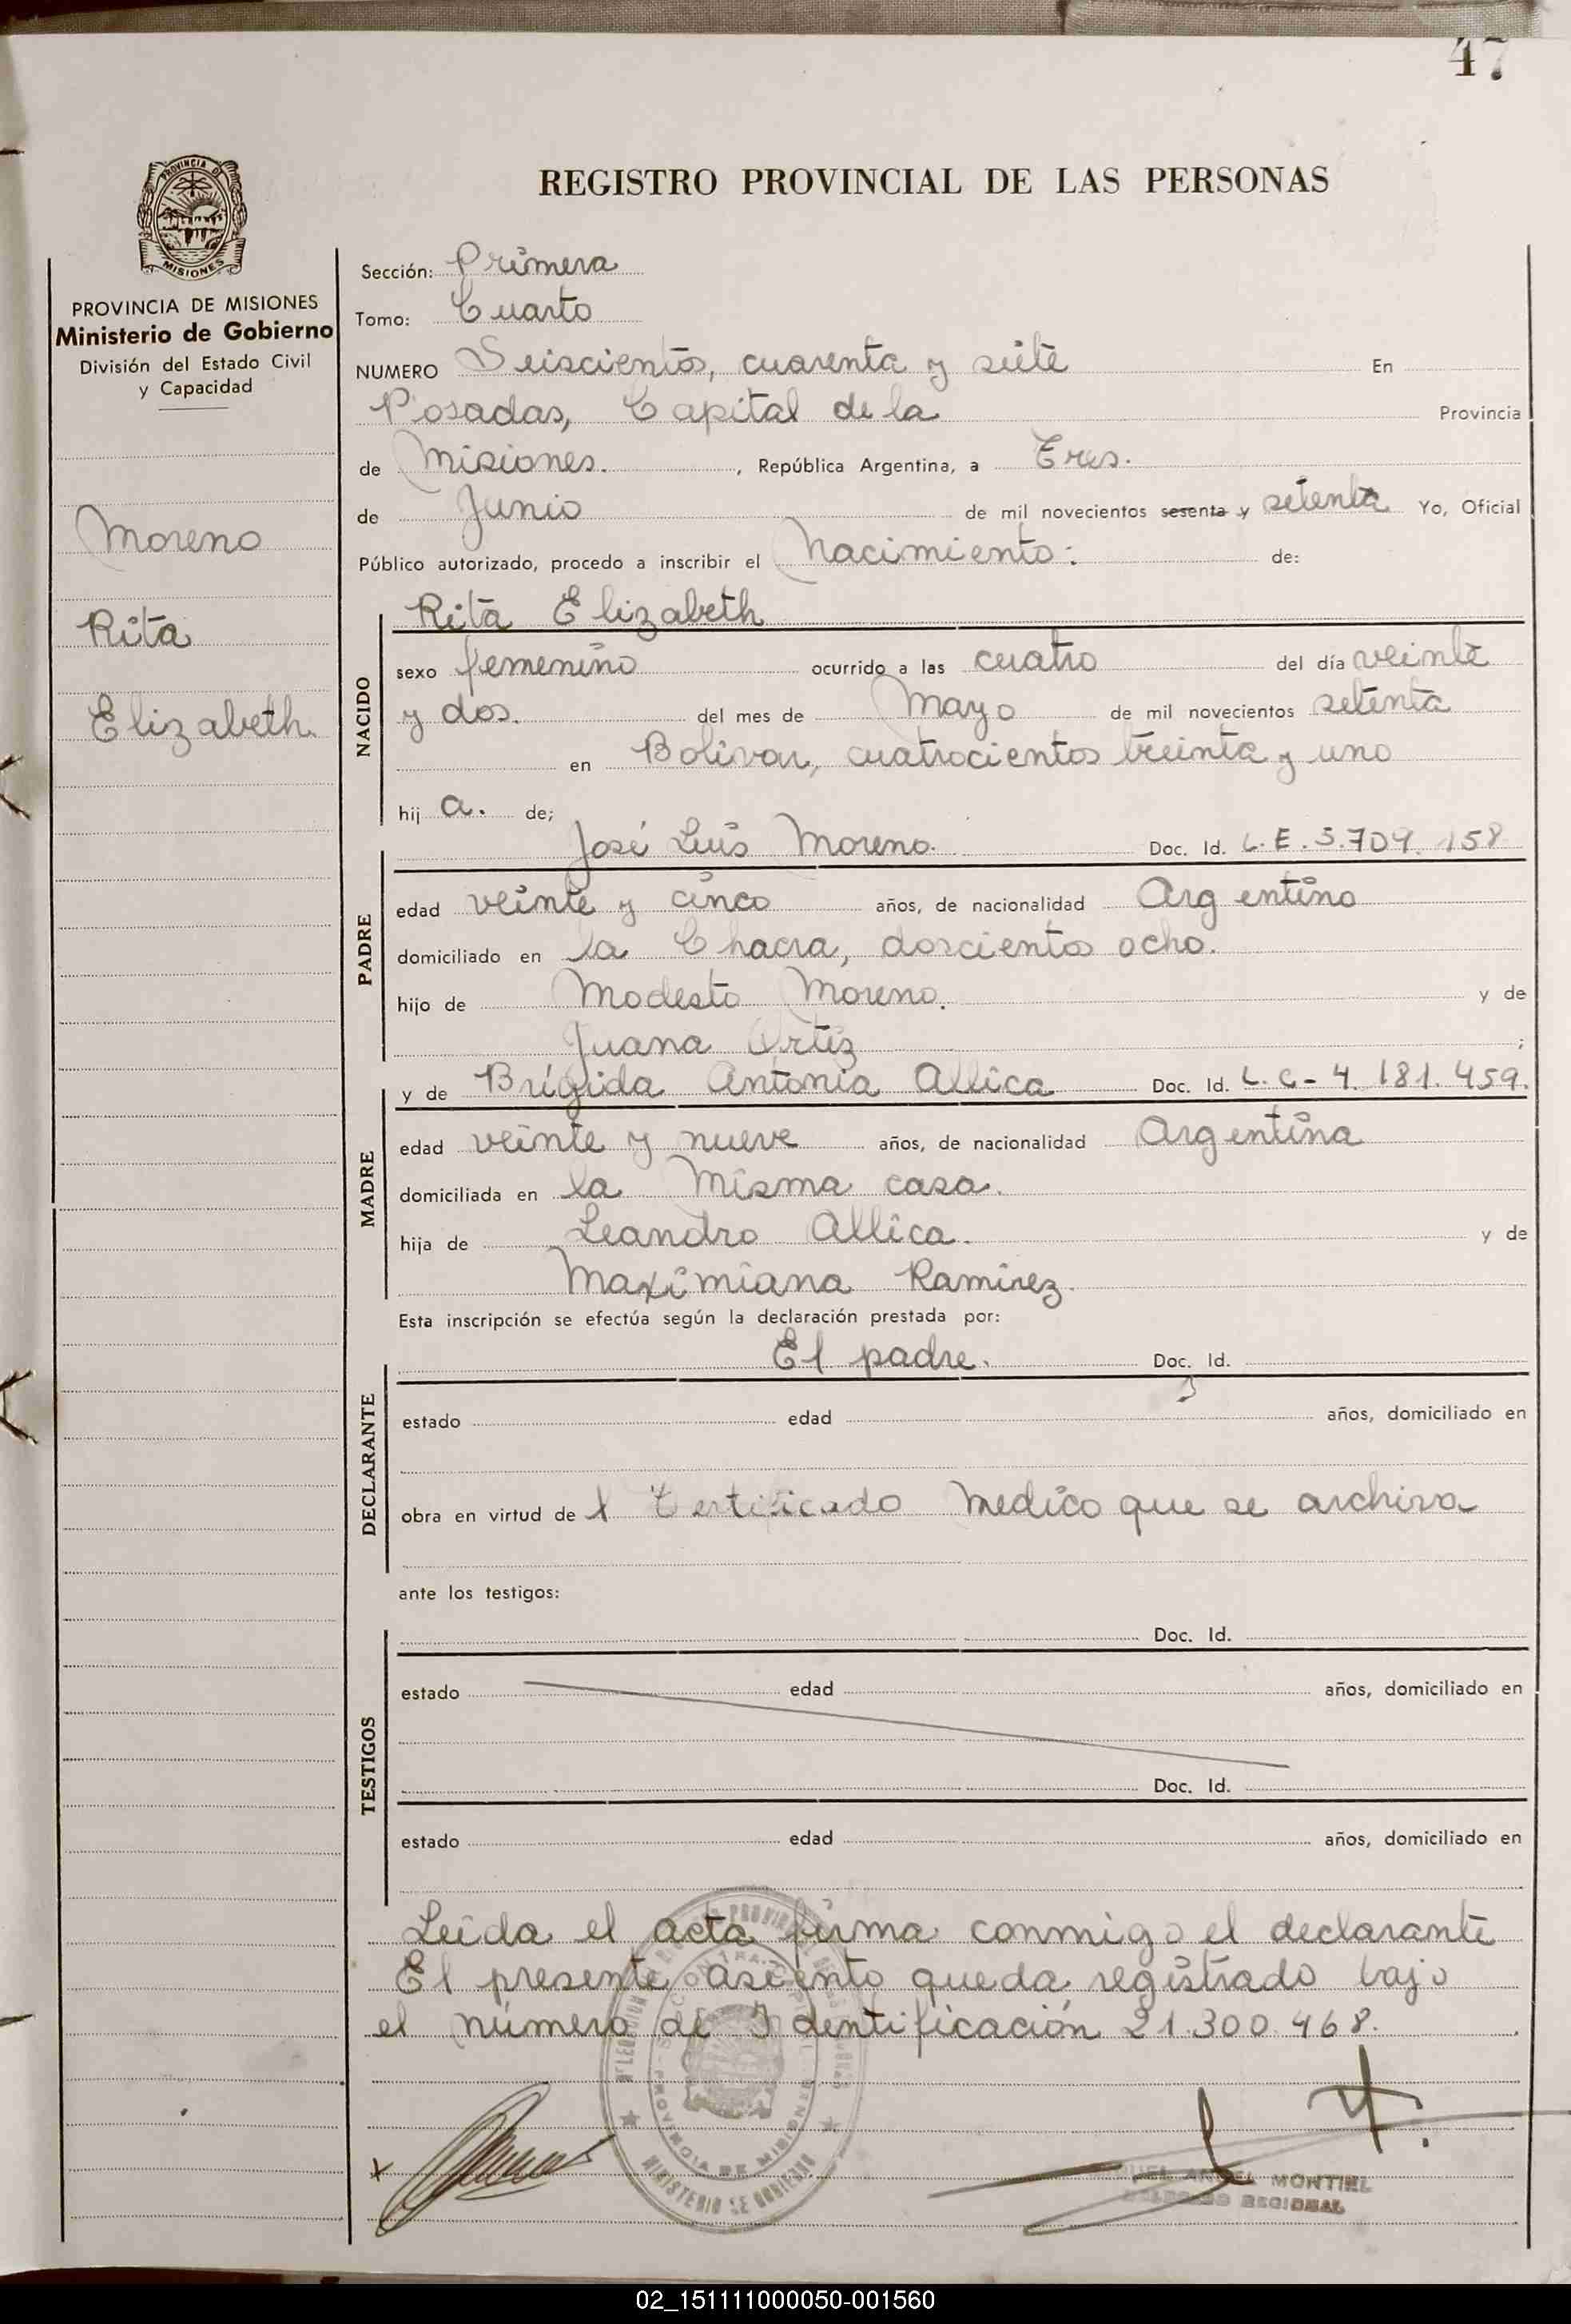 47
PROVINCIA D
MISIONES
REGISTRO PROVINCIAL DE LAS PERSONAS
PROVINCIA DE MISIONES
Ministerio de Gobierno
División del Estado Civil
y Capacidad
Moreno
Rita
Elizabeth.
Sección: Primera
Tomo: Cuarto
NUMERO Seiscientos, cuarenta y siete En
Posadas, Capital de la Provincia
de Misiones. , República Argentina, a Tres.
de Junio de mil novecientos sesenta y setenta Yo, Oficial
Público autorizado, procedo a inscribir el Nacimiento: de:
Rita Elizabeth
NACIDO
sexo femenino ocurrido a las cuatro del día veinte
y dos. del mes de Mayo de mil novecientos setenta
en Bolivar, cuatrocientos treinta y uno
hij a. de;
José Luis Moreno. Doc. Id. L.E. 5.709.158
PADRE
edad veinte y cinco años, de nacionalidad Argentino
domiciliado en la Chacra, dorcientos ocho.
hijo de Modesto Moreno. y de
Juana Ortiz ;
y de Brígida Antonia Allica Doc. Id. L.C-4.181.459.
MADRE
edad veinte y nueve años, de nacionalidad Argentina
domiciliada en la Misma casa.
hija de Leandro Allica. y de
Maximiana Ramirez.
Esta inscripción se efectúa según la declaración prestada por:
El padre. Doc. Id.
DECLARANTE
estado edad años, domiciliado en
obra en virtud de l Certificado Medico que se archiva
ante los testigos:
Doc. Id.
TESTIGOS
estado edad años, domiciliado en
Doc. Id.
estado edad años, domiciliado en
Leida el acta firma conmigo el declarante
El presente asiento queda registrado bajo
el número de Identificación 21.300.468.
PROVINCIA DE MISIONES
MINISTERIO DE GOBIERNO
MONTIEL
REGIONAL
02_151111000050-001560